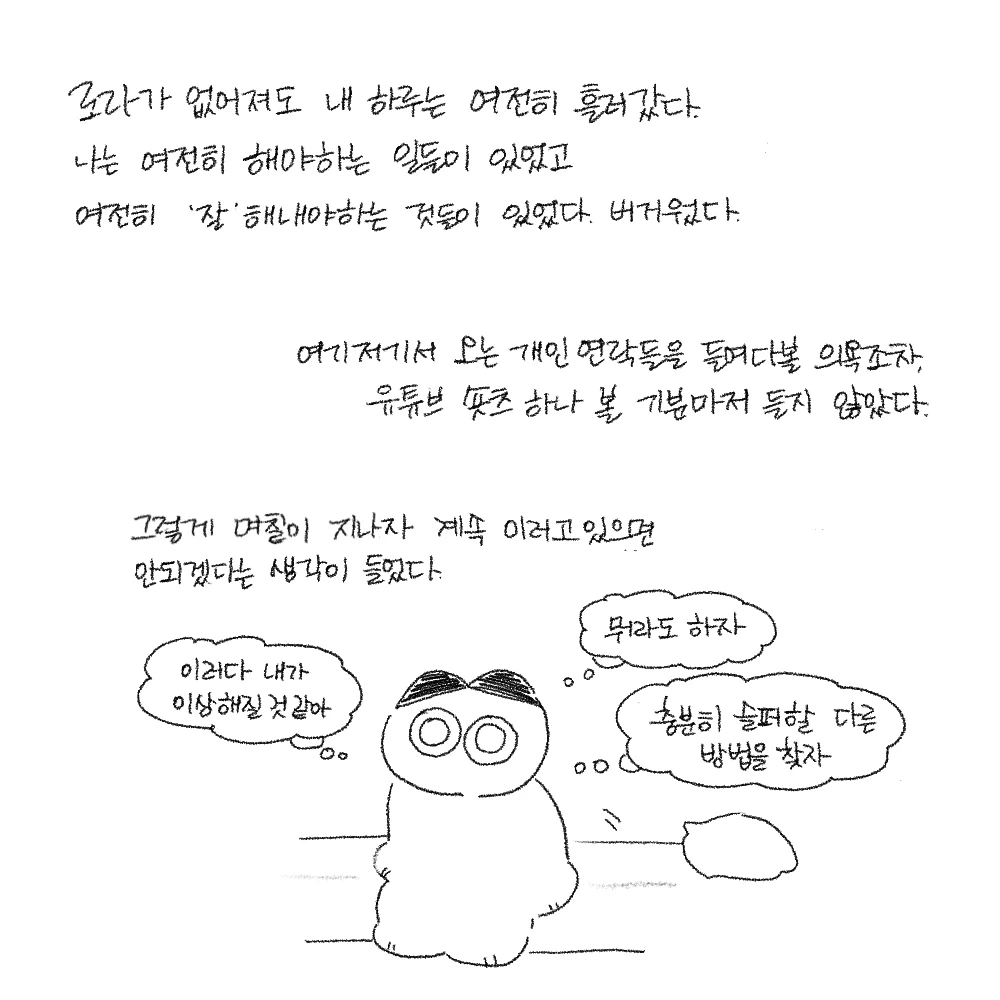 로라가 없어져도 내 하루는 여전히 흘러갔다.
나는 여전히 해야하는 일들이 있었고
여전히 '잘' 해내야하는 것들이 있었다. 버거웠다.
여기저기서 오는 개인 연락들을 들여다볼 의욕조차,
유튜브 숏츠 하나 볼 기분마저 들지 않았다.
그렇게 며칠이 지나자 계속 이러고있으면
안되겠다는 생각이 들었다.
뭐라도 하자
이러다 내가
이상해질 것 같아
충분히 슬퍼할 다른
방법을 찾자